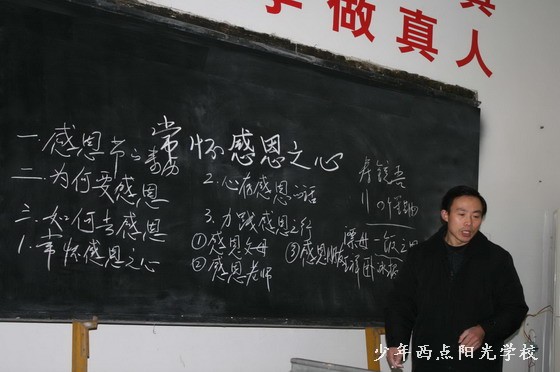 学做真人
真
常怀感恩之心
一.感恩节
二.为何要感恩
三.如何去感恩
1.常怀感恩之心
2.心存感恩之话
3.力践感恩之行
①感恩父母
②感恩老师
③感恩
漂母一饭之恩
少年西点阳光学校